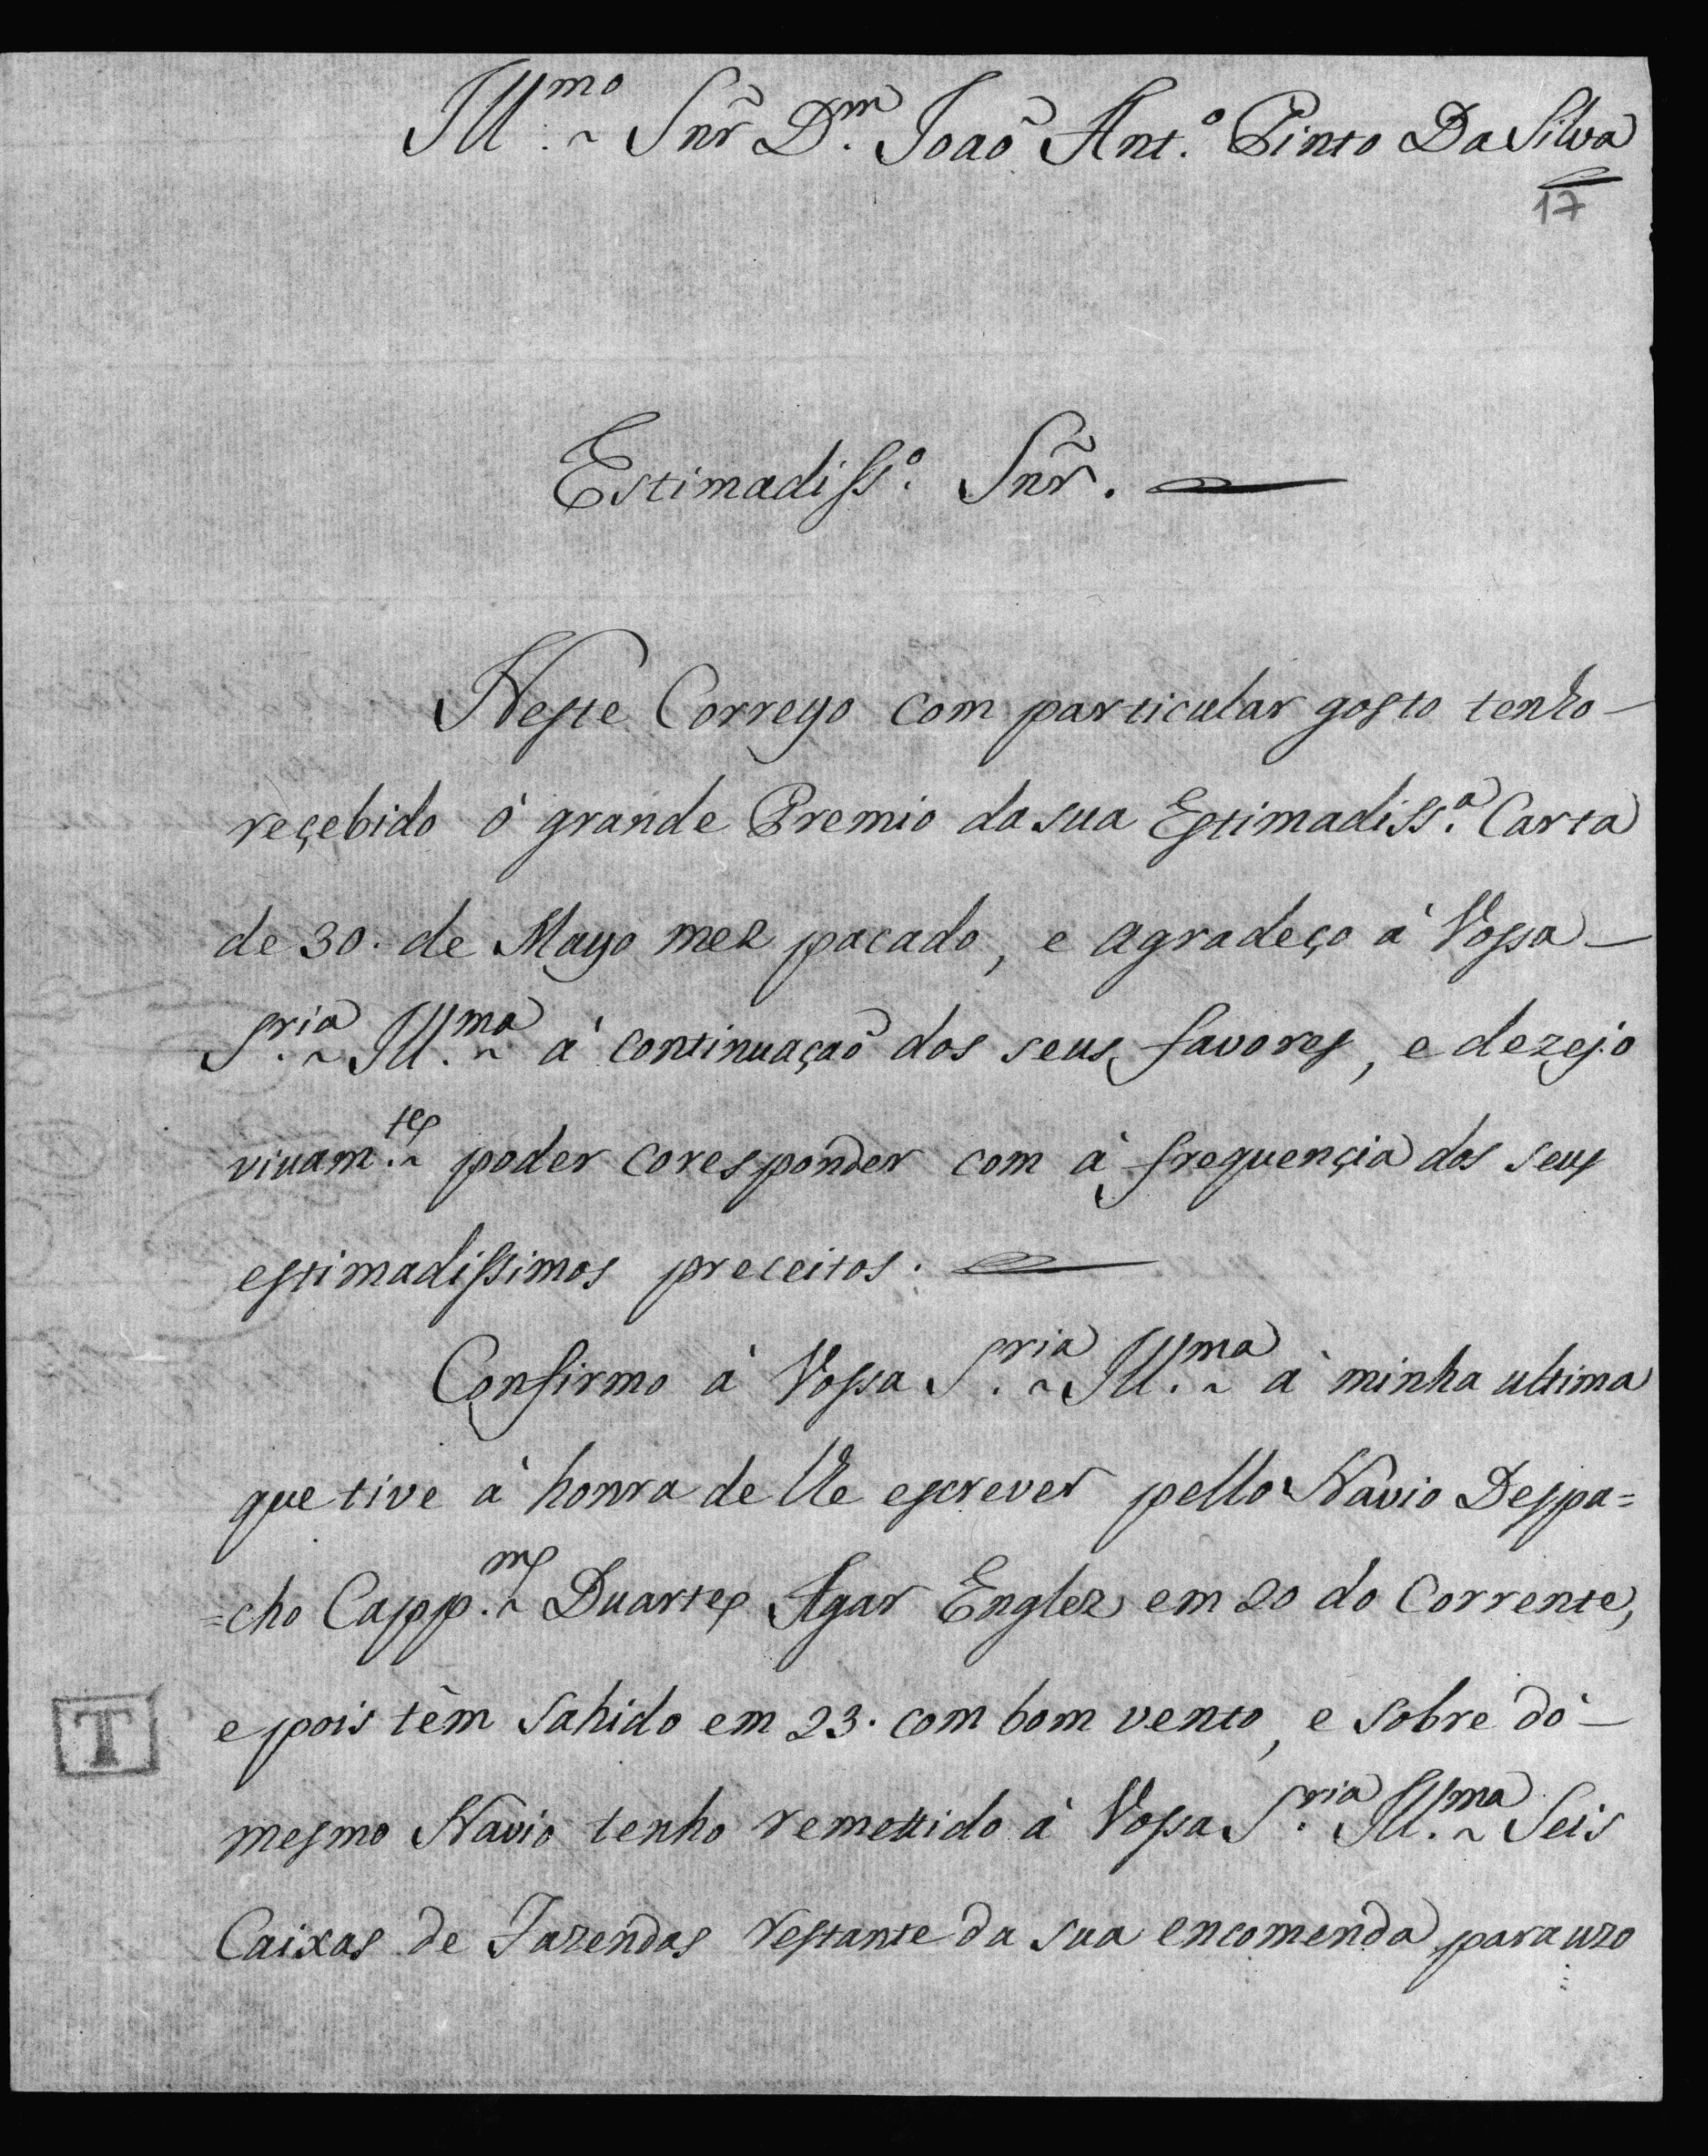 Ill.mo Snr̃ D.m João Ant.o Pinto Da Silva
17
Estimadiss.o Snr̃.
Neste Correyo com particular gosto tenho
reçebido ó grande Premio da sua Estimadiss.a Carta
de 30. de Mayo mez pacado, e agradeço à Vossa
S.ria Ill.ma à continuação dos seus favores, e dezejo
vivam.te poder coresponder com à frequençia dos seus
estimadissimos preceitos.
Confirmo à Vossa S.ria Ill.ma à minha ultima
que tive à honra de lle escrever pello Navio Despa=
=cho Capp.m Duarte Agar Englez em 20 do Corrente,
e pois tèm sahido em 23. com bom vento, e sobre dó
mesmo Navio tenho remettido à Vossa S.ria Ill.ma Seis
Caixas de Fazendas restante da sua encomenda para uzo
T